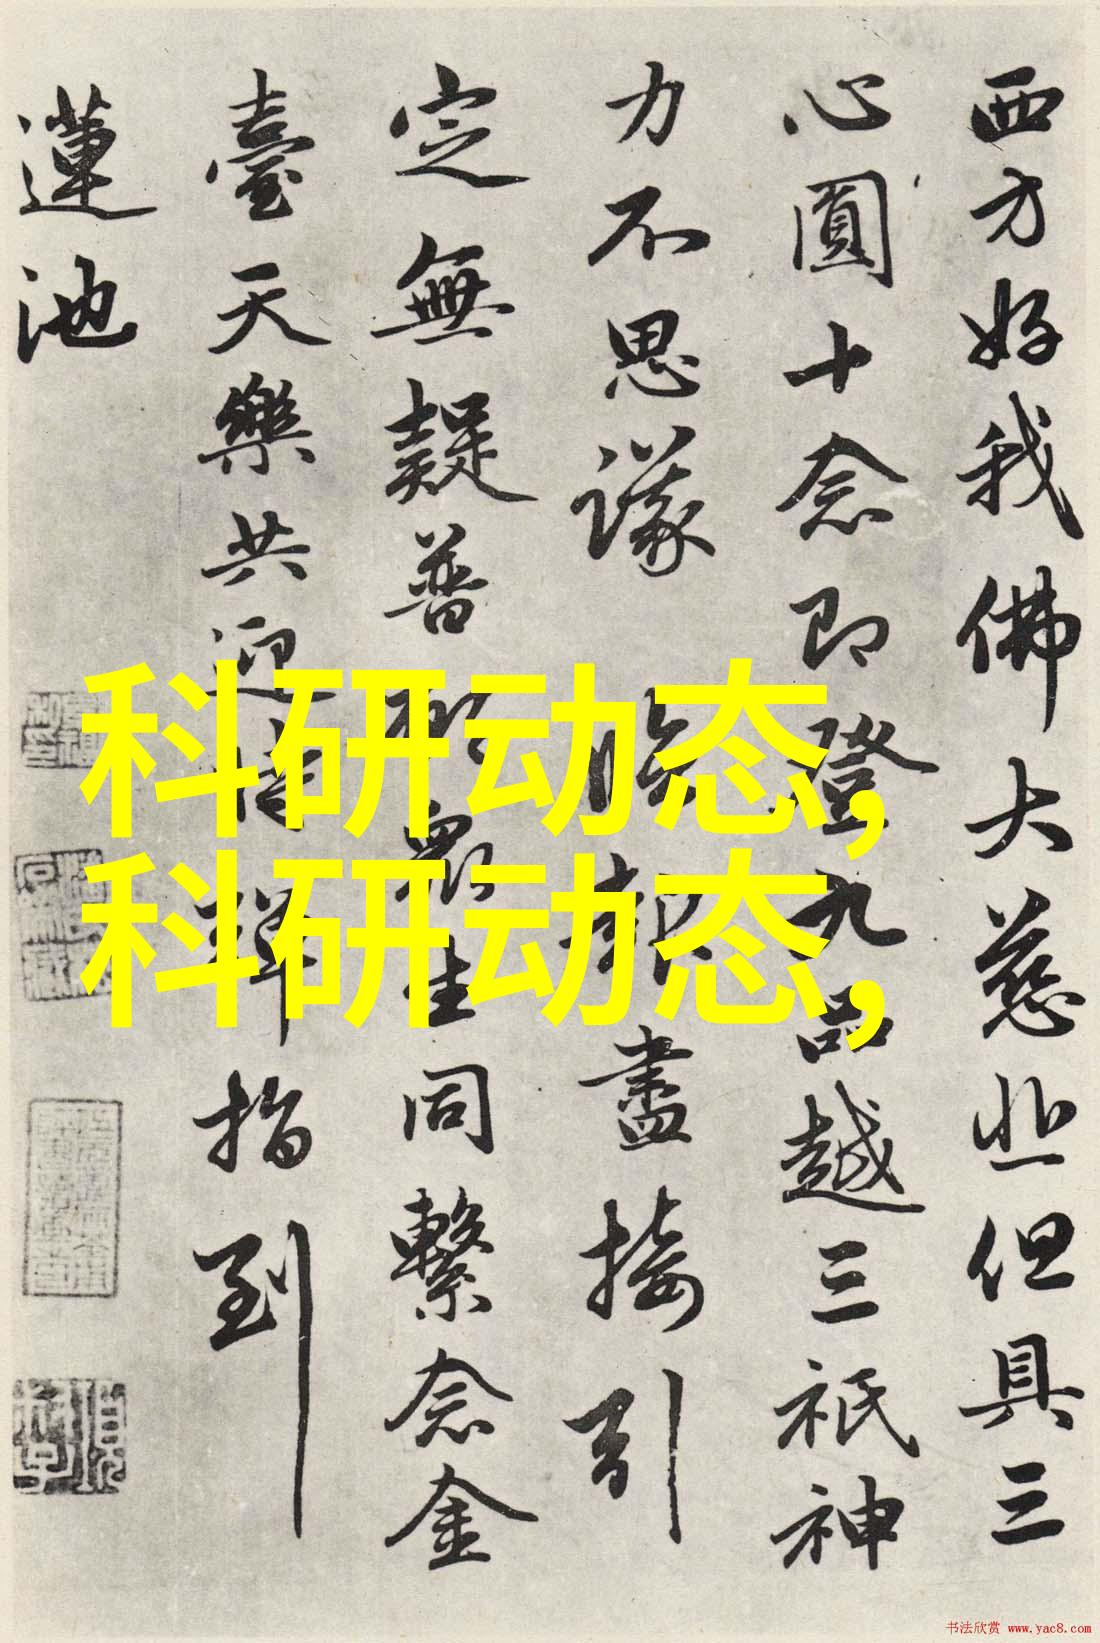 西方好我佛大慈悲但具三
心圓十念即登九品越三祇神
力不思議 臨報盡接引
定無疑普願眾生同繫念金
臺天樂共迎時彈指到
蓮池
科研动态,
科研动态,
书法欣赏 www.yac8.com